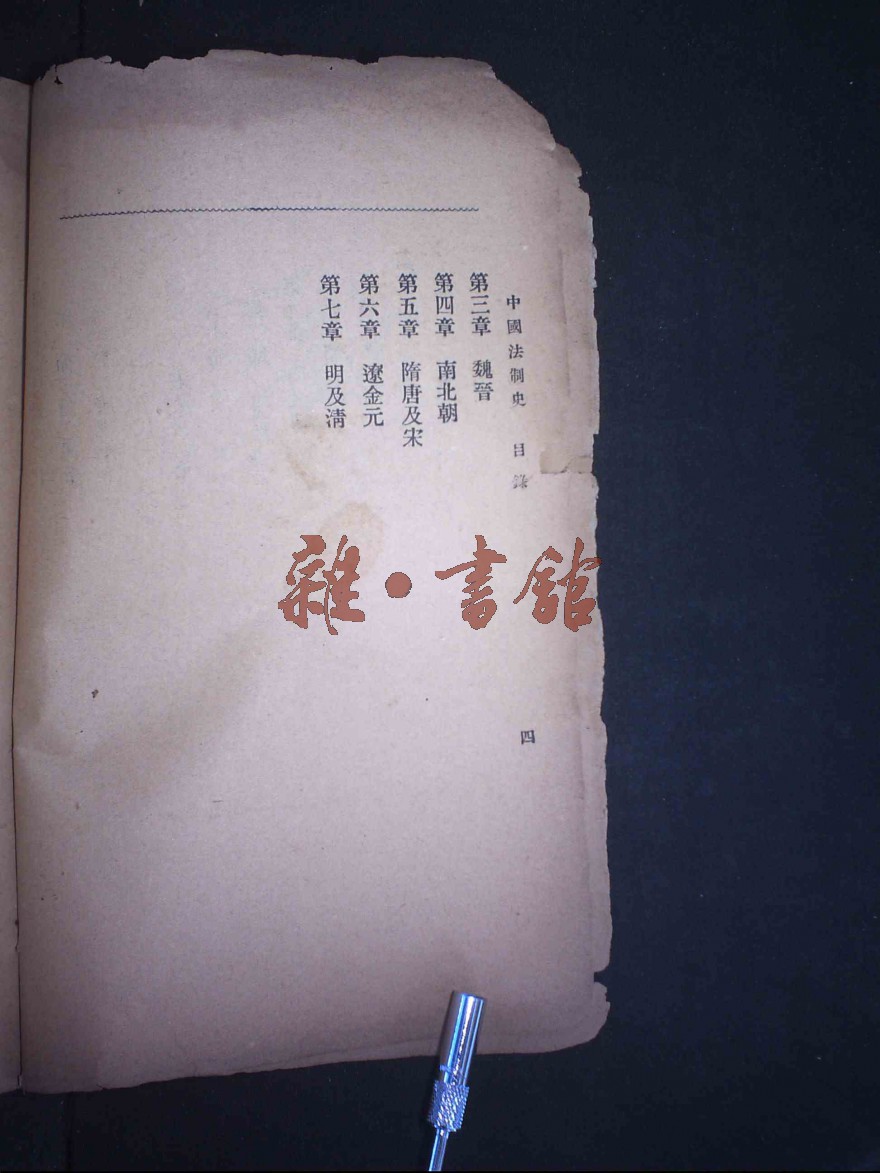 中國法制史 目錄
第三章 魏晉
第四章 南北朝
第五章 隋唐及宋
第六章 遼金元
第七章 明及清
四
雜·書館